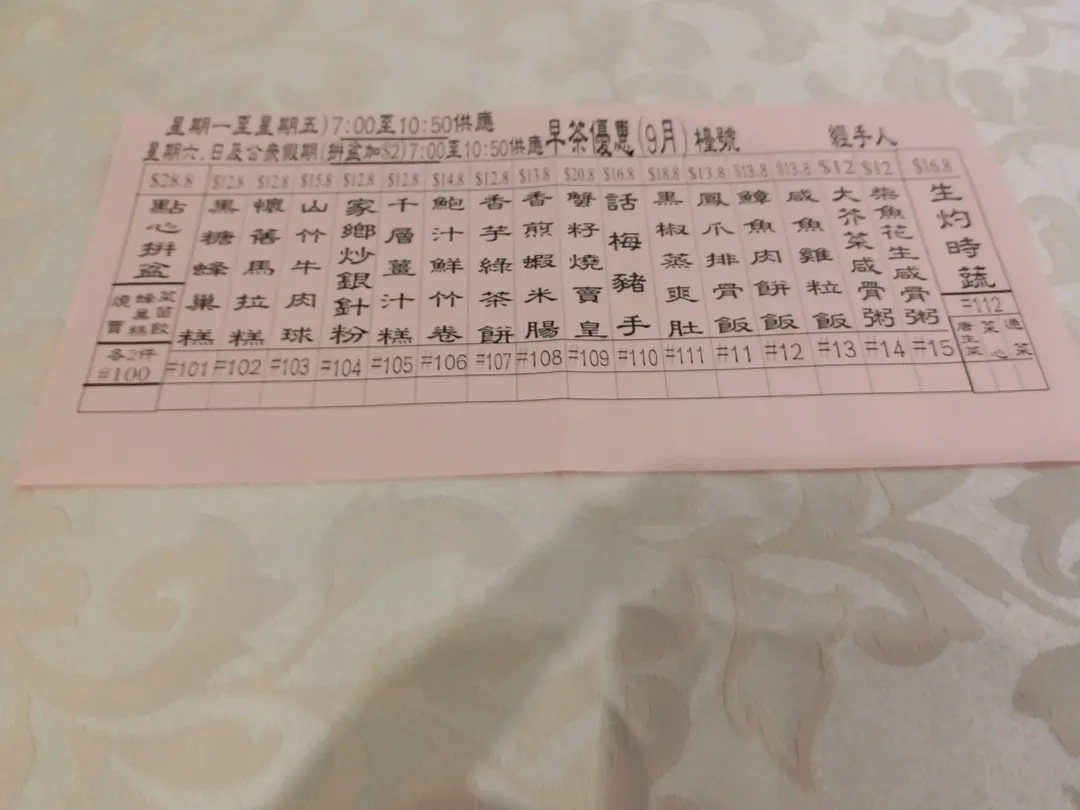 星期一至星期五)7:00至10:50供應
星期六、日及公衆假期(拼盆加$2)7:00至10:50供應
早茶優惠(9月) 檯號 經手人
$28.8 點心拼盆 燒賣 蜂巢糕 菜苗餃 各2件 #100
$12.8 黑糖蜂巢糕 #101
$12.8 懷舊馬拉糕 #102
$15.8 山竹牛肉球 #103
$12.8 家鄉炒銀針粉 #104
$12.8 千層薑汁糕 #105
$14.8 鮑汁鮮竹卷 #106
$12.8 香芋綠茶餅 #107
$13.8 香煎蝦米腸 #108
$20.8 蟹籽燒賣皇 #109
$16.8 話梅豬手 #110
$18.8 黑椒蒸爽肚 #111
$13.8 鳳爪排骨飯 #11
$13.8 鱆魚肉餅飯 #12
$13.8 咸魚雞粒飯 #13
$12 大芥菜咸骨粥 #14
$12 柴魚花生咸骨粥 #15
$16.8 生灼時蔬 #112 唐生菜 菜心 通菜